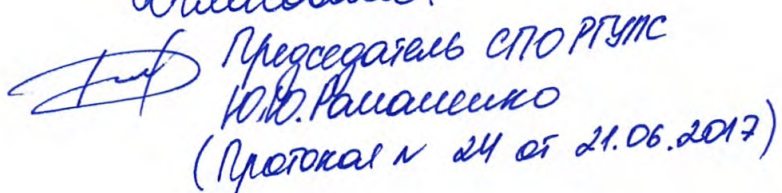 Председатель СПО РГУПС
Ю.Ю. Ромаменко
(Протокол N 24 от 21.06.2017)